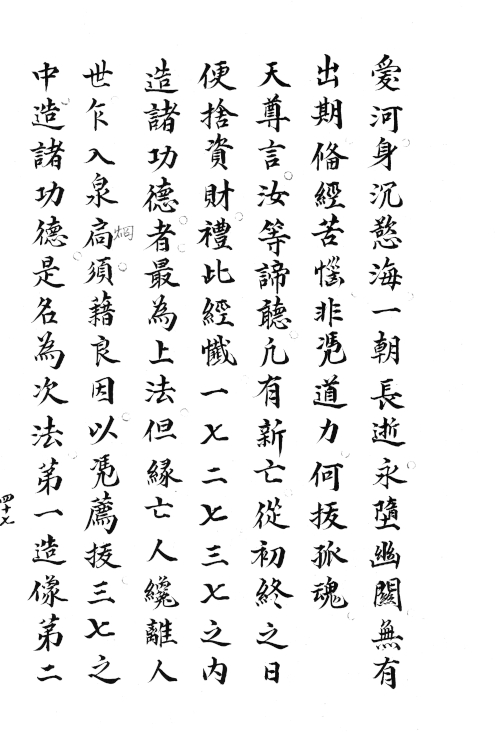 愛河身沉慾海一朝長逝永墮幽關無有
出期俻經苦惱非凴道力何拔孤魂
天尊言汝等諦聽凢有新亡從初終之日
便捨資財禮此經懺一七二七三七之内
造諸功德者最為上法但緣亡人纔離人
世乍入泉扃須藉良因以凴薦拔三七之
中造諸功德是名為次法第一造像第二
四十七